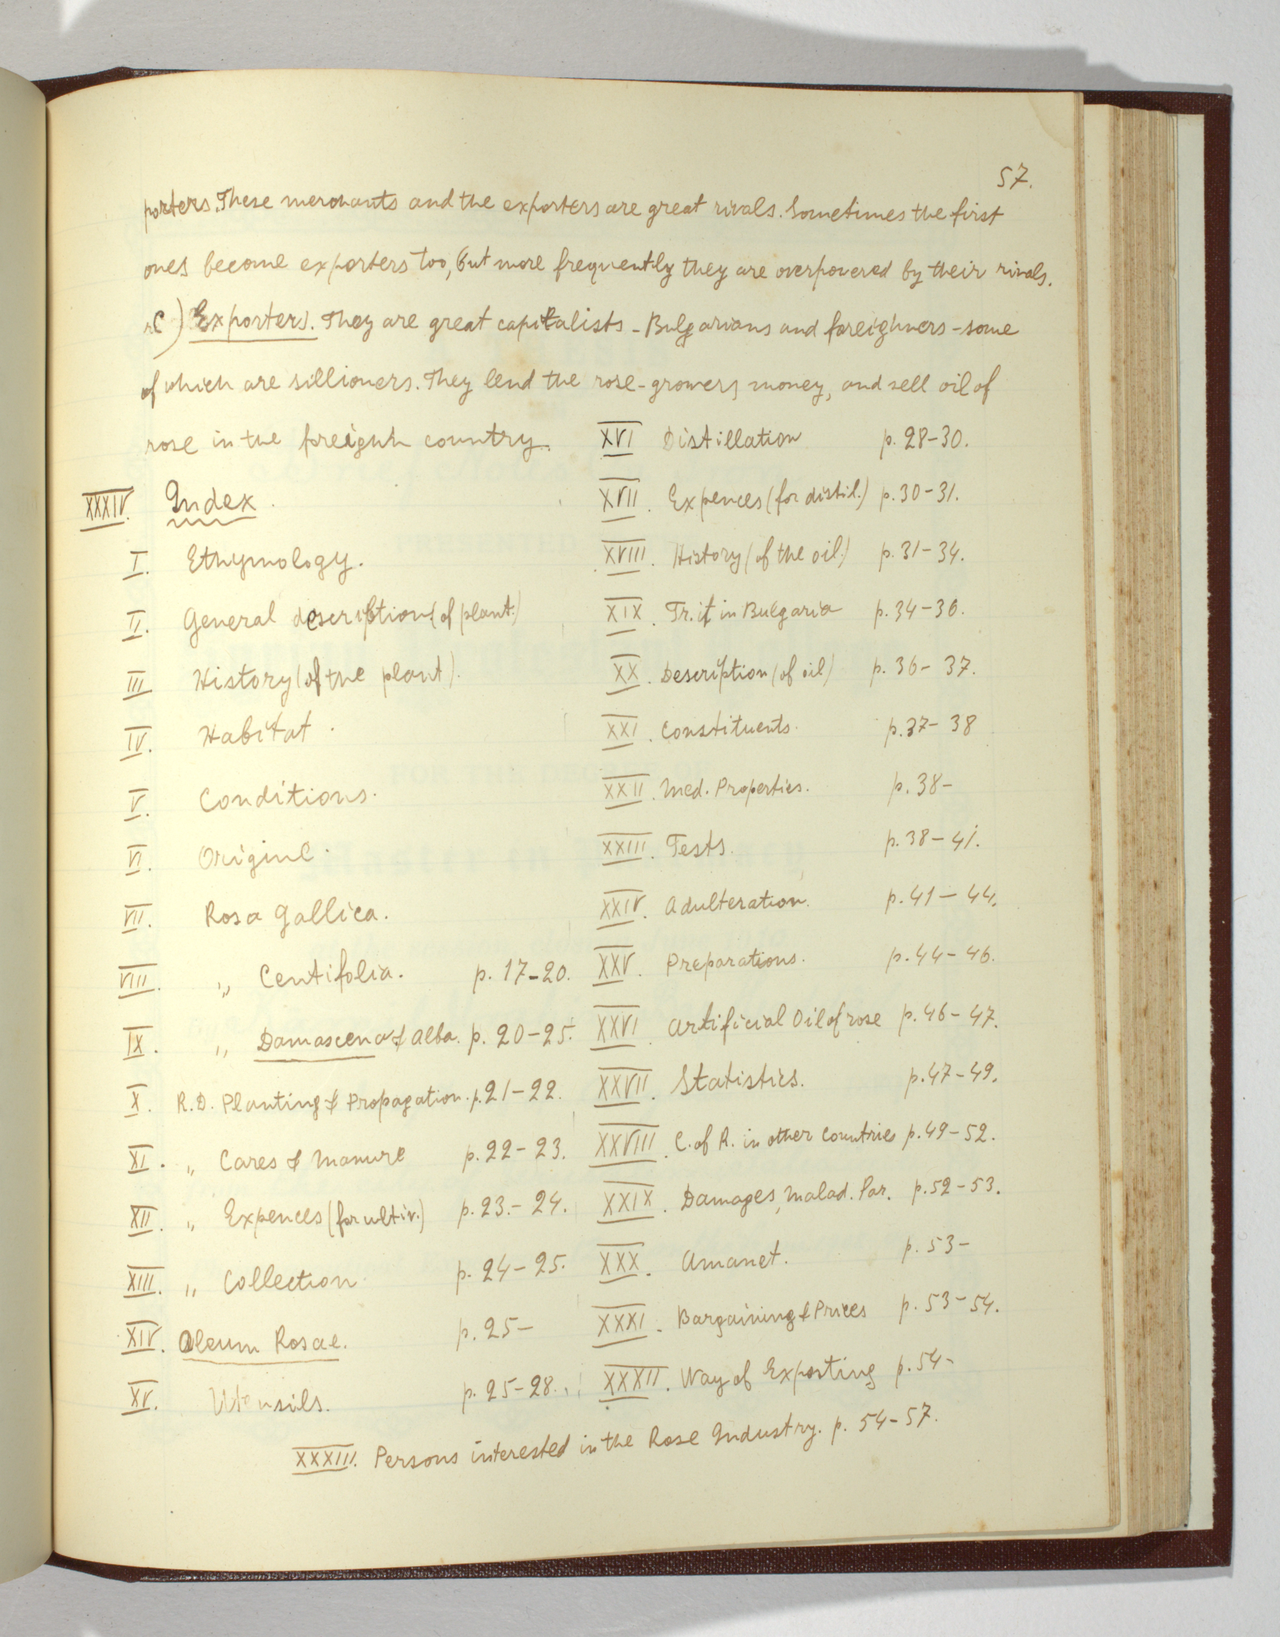 57.
porters. These merchants and the exporters are great rivals. Sometimes the first
ones become exporters too, but more frequently they are overpowered by their rivals.
C) Exporters. They are great capitalists - Bulgarians and foreighners - some
of which are sillioners. They lend the rose-growers money, and sell oil of
rose in the foreighn country.
XXXIV. Index.
I. Ethymology.
II. General description (of plant.)
III History (of the plant).
IV. Habitat.
V. Conditions.
VI. Origine.
VII. Rosa Gallica.
VIII. " Centifolia. p. 17-20.
IX. " Damascena & Alba. p. 20-25.
X. R.D. Planting & Propagation. p. 21-22.
XI. " Cares & Manure p. 22-23.
XII. " Expences (for cultiv.) p. 23.-24.
XIII. " Collection p. 24-25.
XIV. Oleum Rosae. p. 25-
XV. Utensils. p. 25-28.
XVI Distillation p. 28-30.
XVII. Expences (for distil.) p. 30-31.
XVIII. History (of the oil.) p. 31-34.
XIX. Tr. it in Bulgaria p. 34-36.
XX. Description (of oil) p. 36-37.
XXI. Constituents. p. 37-38
XXII. Med. Properties. p. 38-
XXIII. Tests. p. 38-41.
XXIV. Adulteration. p. 41-44.
XXV. Preparations. p. 44-46.
XXVI Artificial Oil of rose p. 46-47.
XXVII. Statistics. p. 47-49.
XXVIII. C. of R. in other Countries p. 49-52.
XXIX. Damages, Malad. Par. p. 52-53.
XXX. Amanet. p. 53-
XXXI. Bargaining & Prices p. 53-54.
XXXII. Way of Exporting p. 54-
XXXIII. Persons interested in the Rose Industry. p. 54-57.